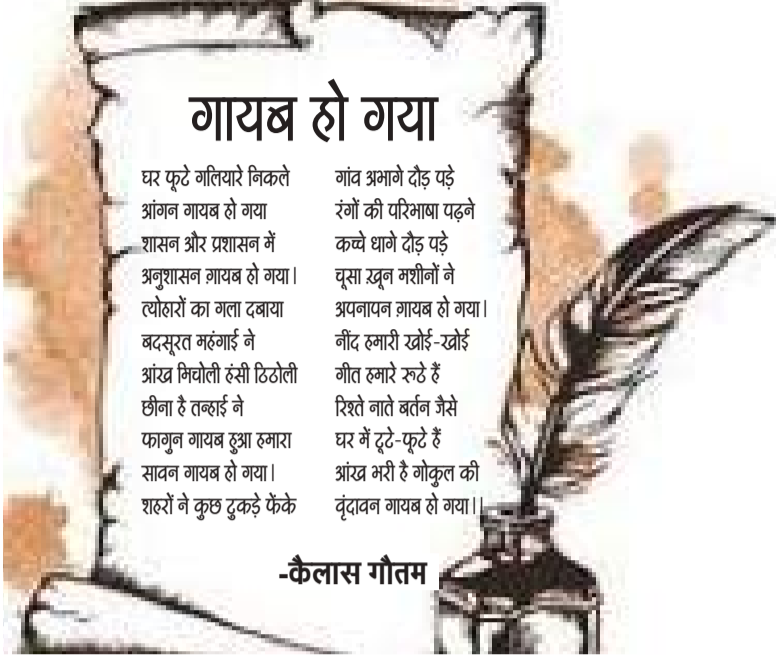 गायब हो गया
घर फूटे गलियारे निकले
आंगन गायब हो गया
शासन और प्रशासन में
अनुशासन ग़ायब हो गया।
त्योहारों का गला दबाया
बदसूरत महंगाई ने
आंख मिचोली हंसी ठिठोली
छीना है तन्हाई ने
फागुन गायब हुआ हमारा
सावन गायब हो गया।
शहरों ने कुछ टुकड़े फेंके
गांव अभागे दौड़ पड़े
रंगों की परिभाषा पढ़ने
कच्चे धागे दौड़ पड़े
चूसा ख़ून मशीनों ने
अपनापन ग़ायब हो गया।
नींद हमारी खोई-खोई
गीत हमारे रूठे हैं
रिश्ते नाते बर्तन जैसे
घर में टूटे-फूटे हैं
आंख भरी है गोकुल की
वृंदावन गायब हो गया।।
-कैलास गौतम